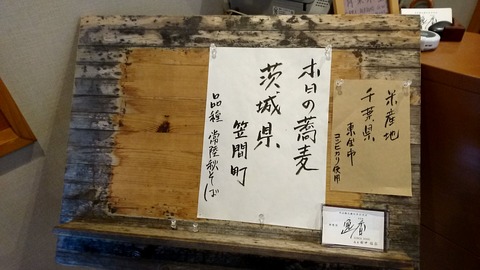 本日の蕎麦
茨城県
笠間町
品種 常陸秋そば
米産地
千葉県
東金市
コシヒカリ使用